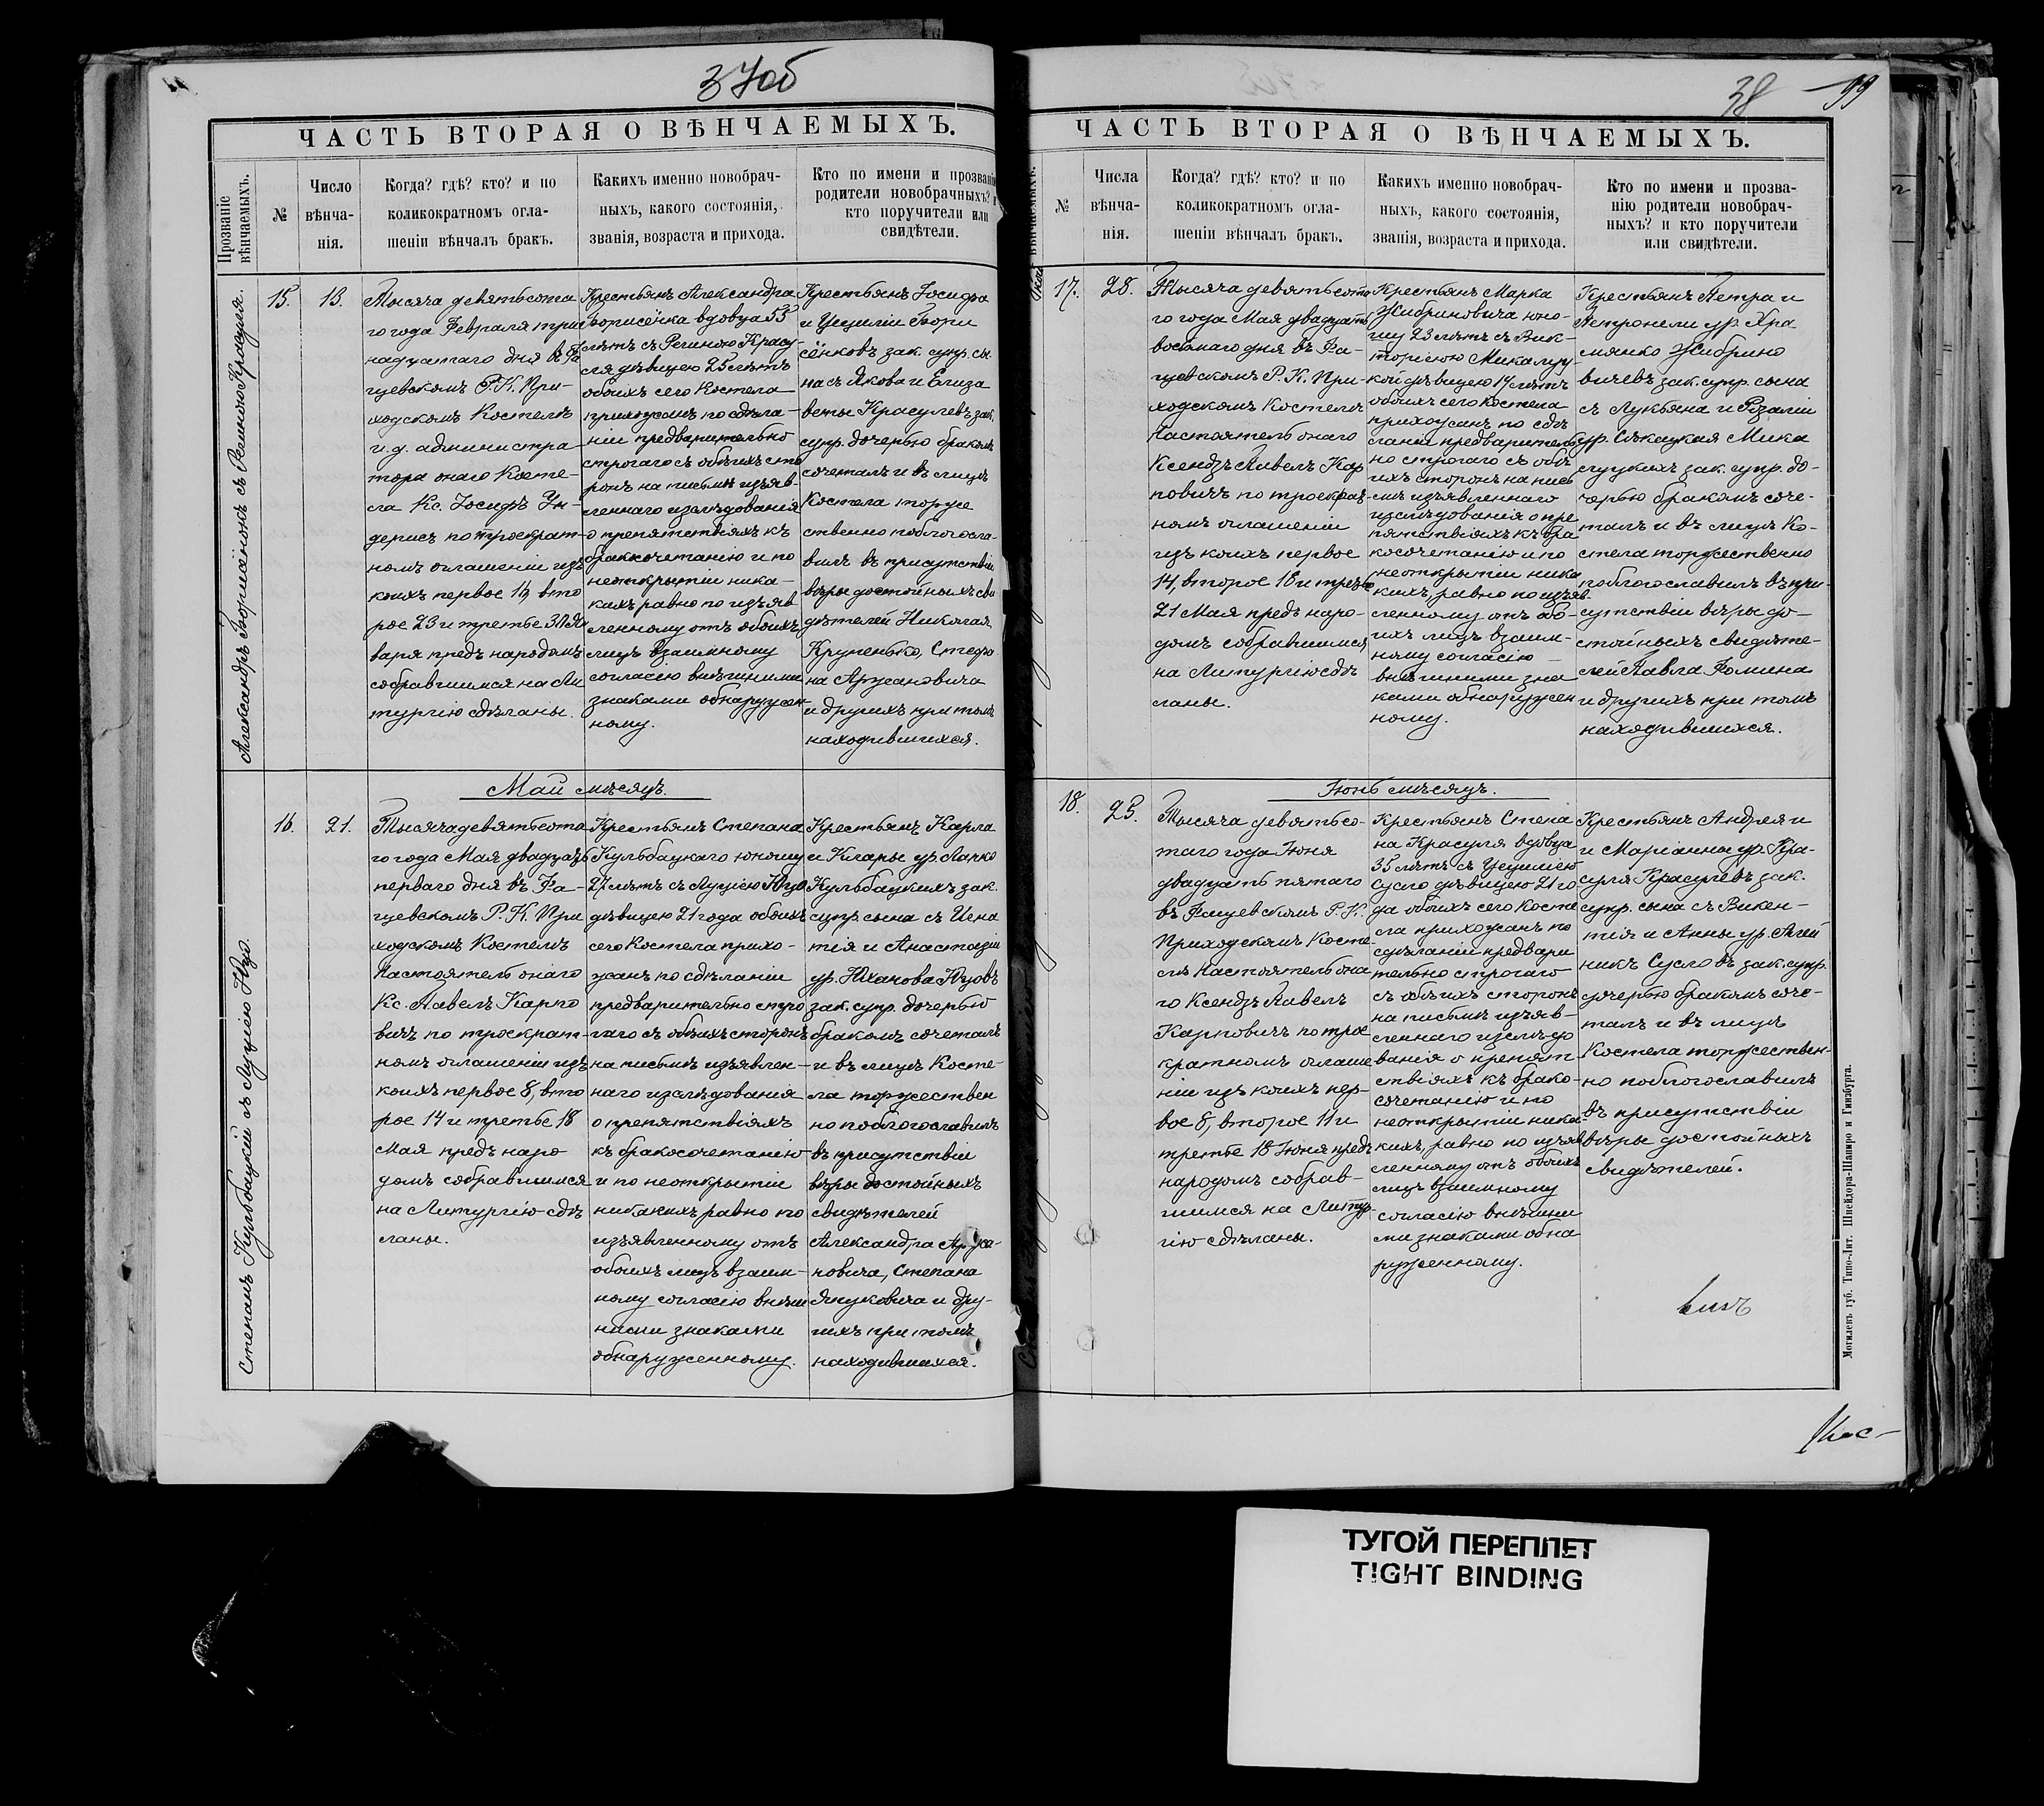 37об
ЧАСТЬ ВТОРАЯ О ВѢНЧАЕМЫХЪ.
Прозваніе вѣнчаемыхъ.
№
Число вѣнча-
нія.
Когда? гдѣ? кто? и по
коликократномъ огла-
шеніи вѣнчалъ бракъ.
Какихъ именно новобрач-
ныхъ, какого состоянія,
званія, возраста и прихода.
Кто по имени и прозванію
родители новобрачныхъ? и
кто поручители или
свидѣтели.
Александръ съ Региною Красуля.
15.
13.
Тысяча девятьсота
го года Февраля три
надцатаго дня въ Фа
щевскомъ Р.К. При-
ходскомъ Костелѣ
и.д. администра
тора онаго Косте-
ла Кс. Іосифъ
по троекрат-
номъ оглашеніи изъ
коихъ первое 16, вто
рое 23 и третье 30 Ян
варя предъ народомъ
собравшимся на Ли
тургію сдѣланы.
Крестьянъ Александра
Борисёнка вдовца 53
лѣтъ съ Региною Красу-
ля дѣвицею 25 лѣтъ
обоихъ сего Костела
прихожанъ по сдѣла-
ніи предварительно
строгаго съ обѣихъ сто
ронъ на письмѣ изъяв-
леннаго изслѣдованія
о препятствіяхъ къ
бракосочетанію и по
неоткрытіи ника-
кихъ равно по изъяв
ленному отъ обоихъ
лицъ взаимному
согласію внѣшними
знаками обнаружен
ному.
Крестьянъ Іосифа
и Цециліи Бори
сёнковъ зак. супр. сы
на съ Якова и Елиза
веты Красулевъ зак.
супр. дочерью бракомъ
сочеталъ и въ лицѣ
Костела торже
ственно поблагосла-
вилъ въ присутствіи
вѣры достойныхъ сви
дѣтелей Николая
Крупенько, Стефа
на Аржановича
и другихъ при томъ
находившихся.
Май мѣсяцъ.
Степанъ Кульбацкій съ Луціею Юцо.
16.
21.
Тысяча девятьсота
го года Мая двадцать
перваго дня въ Фа-
щевскомъ Р.К. При
ходскомъ Костелѣ
Настоятель онаго
Кс. Павелъ Карпо
вичъ по троекрат-
номъ оглашеніи изъ
коихъ первое 8, вто
рое 14 и третье 18
Мая предъ наро
домъ собравшимся
на Литургію сдѣ
ланы.
Крестьянъ Степана
Кульбацкаго юношу
27 лѣтъ съ Луціею Юцо
дѣвицею 21 года обоихъ
сего Костела прихо-
жанъ по сдѣланіи
предварительно стро
гаго съ обѣихъ сторонъ
на письмѣ изъявлен-
наго изслѣдованія
о препятствіяхъ
къ бракосочетанію
и по неоткрытіи
никакихъ равно по
изъявленному отъ
обоихъ лицъ взаим-
ному согласію внѣш
ними знаками
обнаруженному.
Крестьянъ Карла
и Клары ур. Ланко
Кульбацкихъ зак.
супр. сына съ Игна
тія и Анастазіи
ур. Юханова Юцовъ
зак. супр. дочерью
бракомъ сочеталъ
и въ лицѣ Косте-
ла торжествен
но поблагославилъ
въ присутствіи
вѣры достойныхъ
свидѣтелей
Александра Аржа-
новича, Степана
Януковича и дру-
гихъ при томъ
находившихся.
38
99
ЧАСТЬ ВТОРАЯ О ВѢНЧАЕМЫХЪ.
№
Числа
вѣнча-
нія.
Когда? гдѣ? кто? и по
коликократномъ огла-
шеніи вѣнчалъ бракъ.
Какихъ именно новобрач-
ныхъ, какого состоянія,
званія, возраста и прихода.
Кто по имени и прозва-
нію родители новобрач-
ныхъ? и кто поручители
или свидѣтели.
17.
28.
Тысяча девятьсота
го года Мая двадцать
восьмаго дня въ Фа-
щевскомъ Р.К. При-
ходскомъ Костелѣ
Настоятель онаго
Ксендзъ Павелъ Кар
повичъ по троекрат-
номъ оглашеніи
изъ коихъ первое
14, второе 18 и третье
21 Мая предъ наро-
домъ собравшимся
на Литургію сдѣ
ланы.
Крестьянъ Марка
Жибриновича юно-
шу 23 лѣтъ съ Вик-
торіею Микалуц-
кой дѣвицею 19 лѣтъ
обоихъ сего костела
прихожанъ по сдѣ
ланіи предваритель
но строгаго съ обѣ
ихъ сторонъ на пись
мѣ изъявленнаго
изслѣдованія о пре
пятствіяхъ къ бра
косочетанію и по
неоткрытіи ника
кихъ, равно по изъяв-
ленному отъ обо-
ихъ лицъ взаим-
ному согласію
внѣшними зна
ками обнаружен
ному.
Крестьянъ Петра и
Петронели ур. Хра
мянко Жибрино
вичевъ зак. супр. сына
съ Лукьяна и Розаліи
ур. Сѣкацкая Мика
луцкихъ зак. супр. до-
черью бракомъ соче-
талъ и въ лицѣ Ко-
стела торжественно
поблагославилъ въ при-
сутствіи вѣры до-
стойныхъ свидѣте-
лей Павла Фомина
и другихъ при томъ
находившихся.
Іюнь мѣсяцъ.
18.
25.
Тысяча девятьсо-
таго года Іюня
двадцать пятаго
въ Фащевскомъ Р.К.
Приходскомъ Косте
лѣ Настоятель она
го Ксендзъ Павелъ
Карповичъ по трое
кратномъ оглаше
ніи изъ коихъ пер-
вое 8, второе 11 и
третье 18 Іюня предъ
народомъ собрав-
шимся на Литур-
гію сдѣланы.
Крестьянъ Степа
на Красуля вдовца
35 лѣтъ съ Цецилiею
Сусло дѣвицею 21 го
да обоихъ сего Косте
ла прихожанъ по
сдѣланіи предвари
тельно строгаго
съ обѣихъ сторонъ
на письмѣ изъяв-
леннаго изслѣдо
ванія о препят-
ствіяхъ къ брако-
сочетанію и по
неоткрытіи ника-
кихъ, равно по изъяв
ленному отъ обоихъ
лицъ взаимному
согласію внѣшни
ми знаками обна
руженному.
Крестьянъ Андрея и
и Маріанны ур. Кра-
суля Красулевъ зак.
супр. сына съ Викен-
тія и Анны ур. Алей
никъ Сусловъ зак. супр.
дочерью бракомъ соче-
талъ и въ лицѣ
Костела торжествен-
но поблагославилъ
въ присутствіи
вѣры достойныхъ
свидѣтелей.
Могилевъ губ. Типо-Лит. Шнейдора-Шапиро и Гинзбурга.
ТУГОЙ ПЕРЕПЛЕТ
TIGHT BINDING